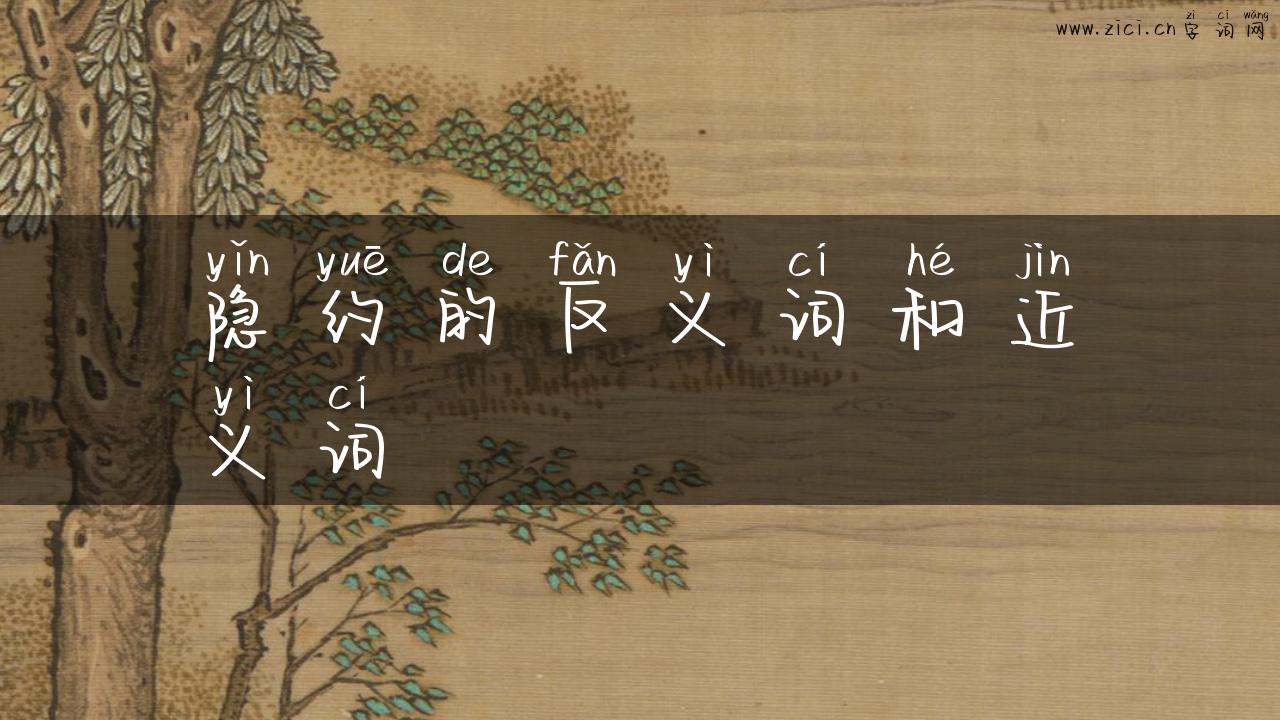 zì cí wǎng
www.zici.cn 字 词 网
yǐn yuē de fǎn yì cí hé jìn
隐 约 的 反 义 词 和 近
yì cí
义 词